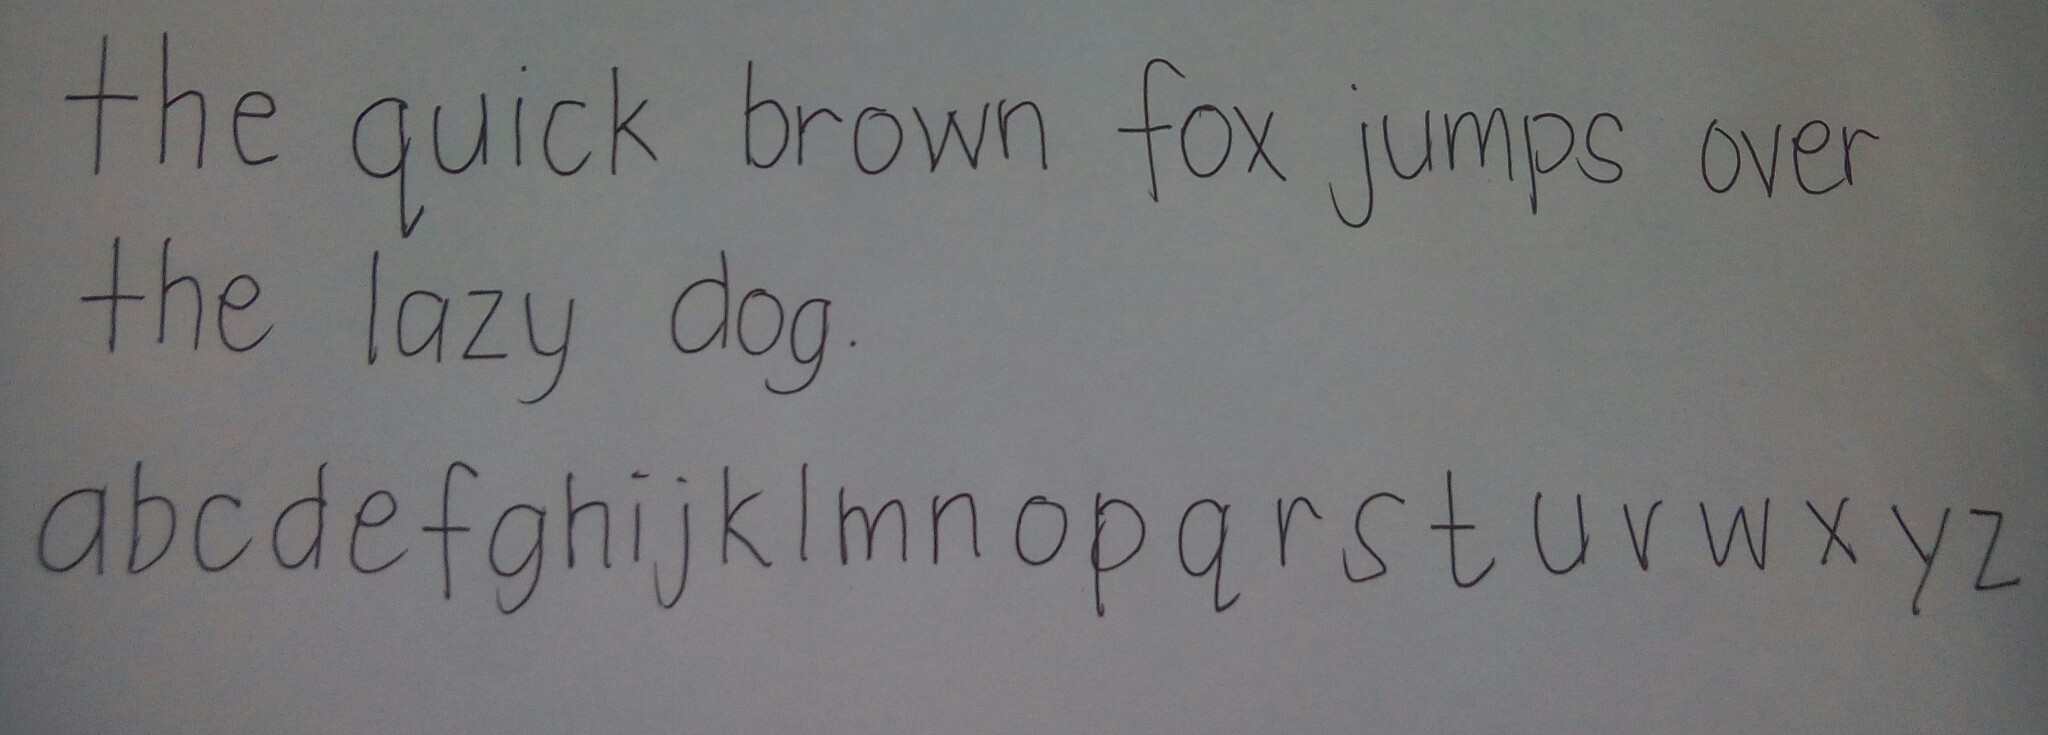 the quick brown fox jumps over
the lazy dog.
abcdefghijklmnopqrstuvwxyz